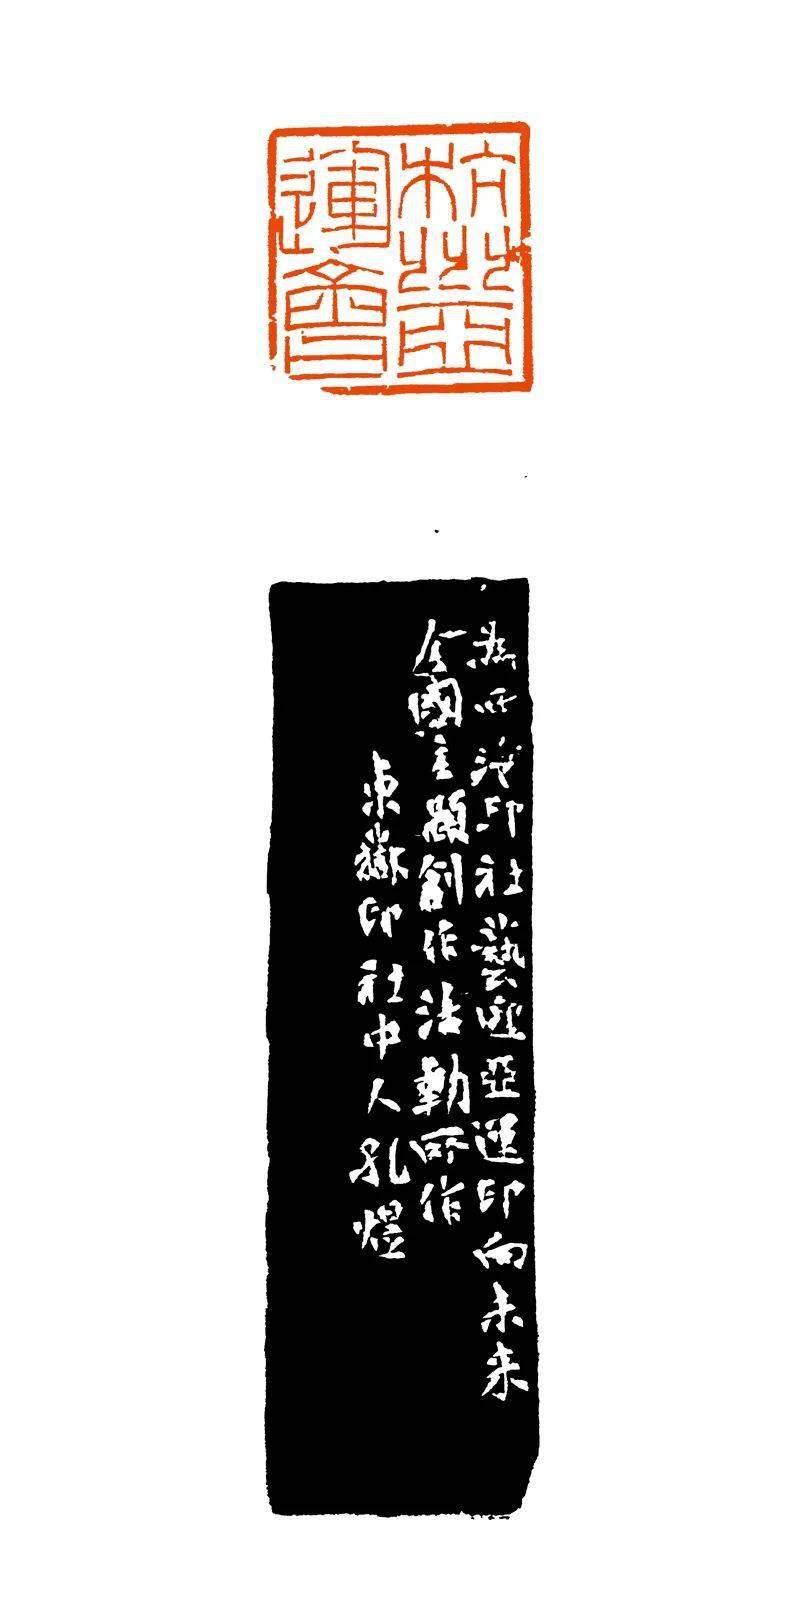 杭州亞
運會
為西泠印社藝匯亞運印向未来
全國主題創作活動所作
東嶽印社中人孔煜